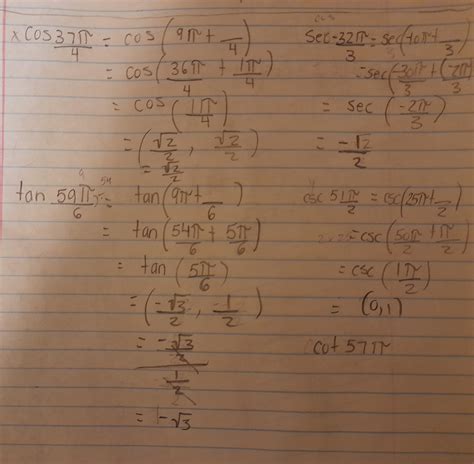 x cos 37π/4 = cos(9π + /4)
= cos(36π/4 + 1π/4)
= cos(1π/4)
= (√2/2, √2/2)
= √2/2
tan 59π/6 = tan(9π + /6)
= tan(54π/6 + 5π/6)
= tan(5π/6)
= (-√3/2, -1/2)
= -√3/2
1/2
= -√3
sec -32π/3 = sec(10π + /3)
= sec(-30π/3 + (-2π/3)
= sec(-2π/3)
= -√2/2
csc 51π/2 = csc(25π + /2)
= csc(50π/2 1π/2)
= csc(1π/2)
= (0,1)
cot 57π